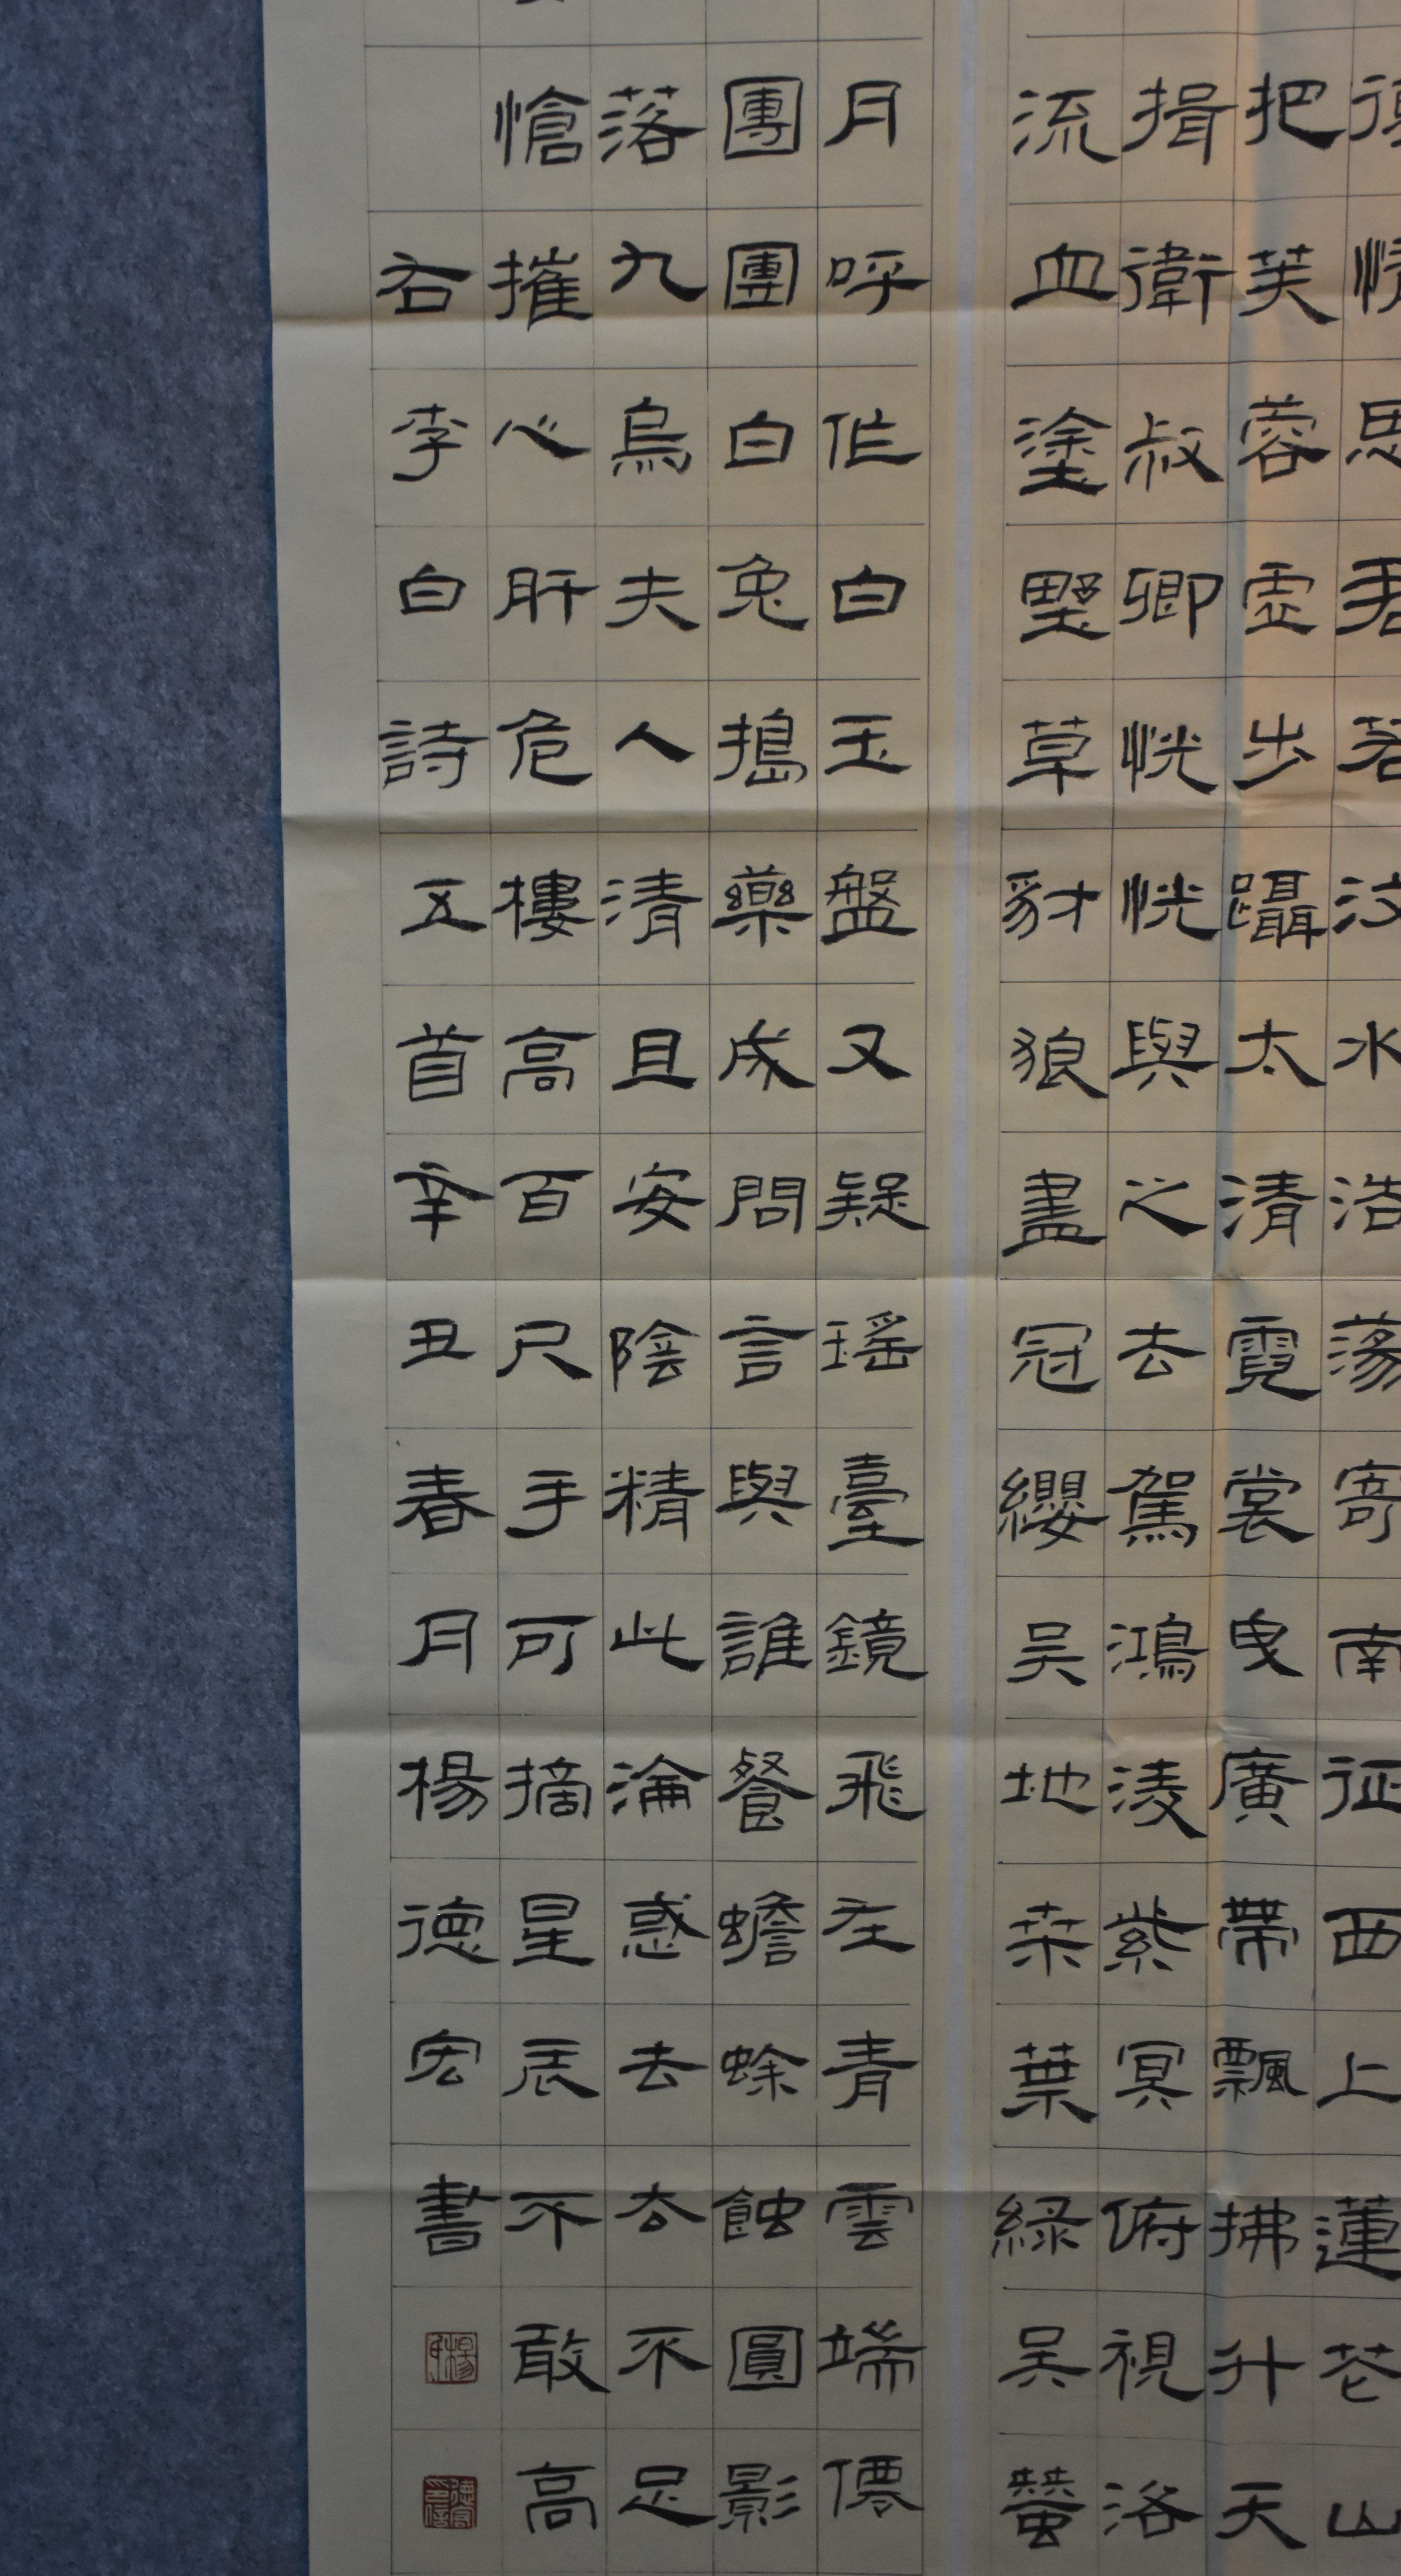 復情思君若汶水浩蕩寄南征西上蓮花山
把芙蓉虛步躡太清霓裳曳廣帶飄拂升天
揖衛叔卿恍恍與之去駕鴻淩紫冥俯視洛
流血塗野草豺狼盡冠纓吳地桑葉綠吳蠶
月呼作白玉盤又疑瑤臺鏡飛在青雲端僊
團團白兔搗藥成問言與誰餐蟾蜍蝕圓影
落九烏夫人清且安陰精此淪惑去去不足
愴摧心肝危樓高百尺手可摘星辰不敢高
右李白詩五首辛丑春月楊德宏書